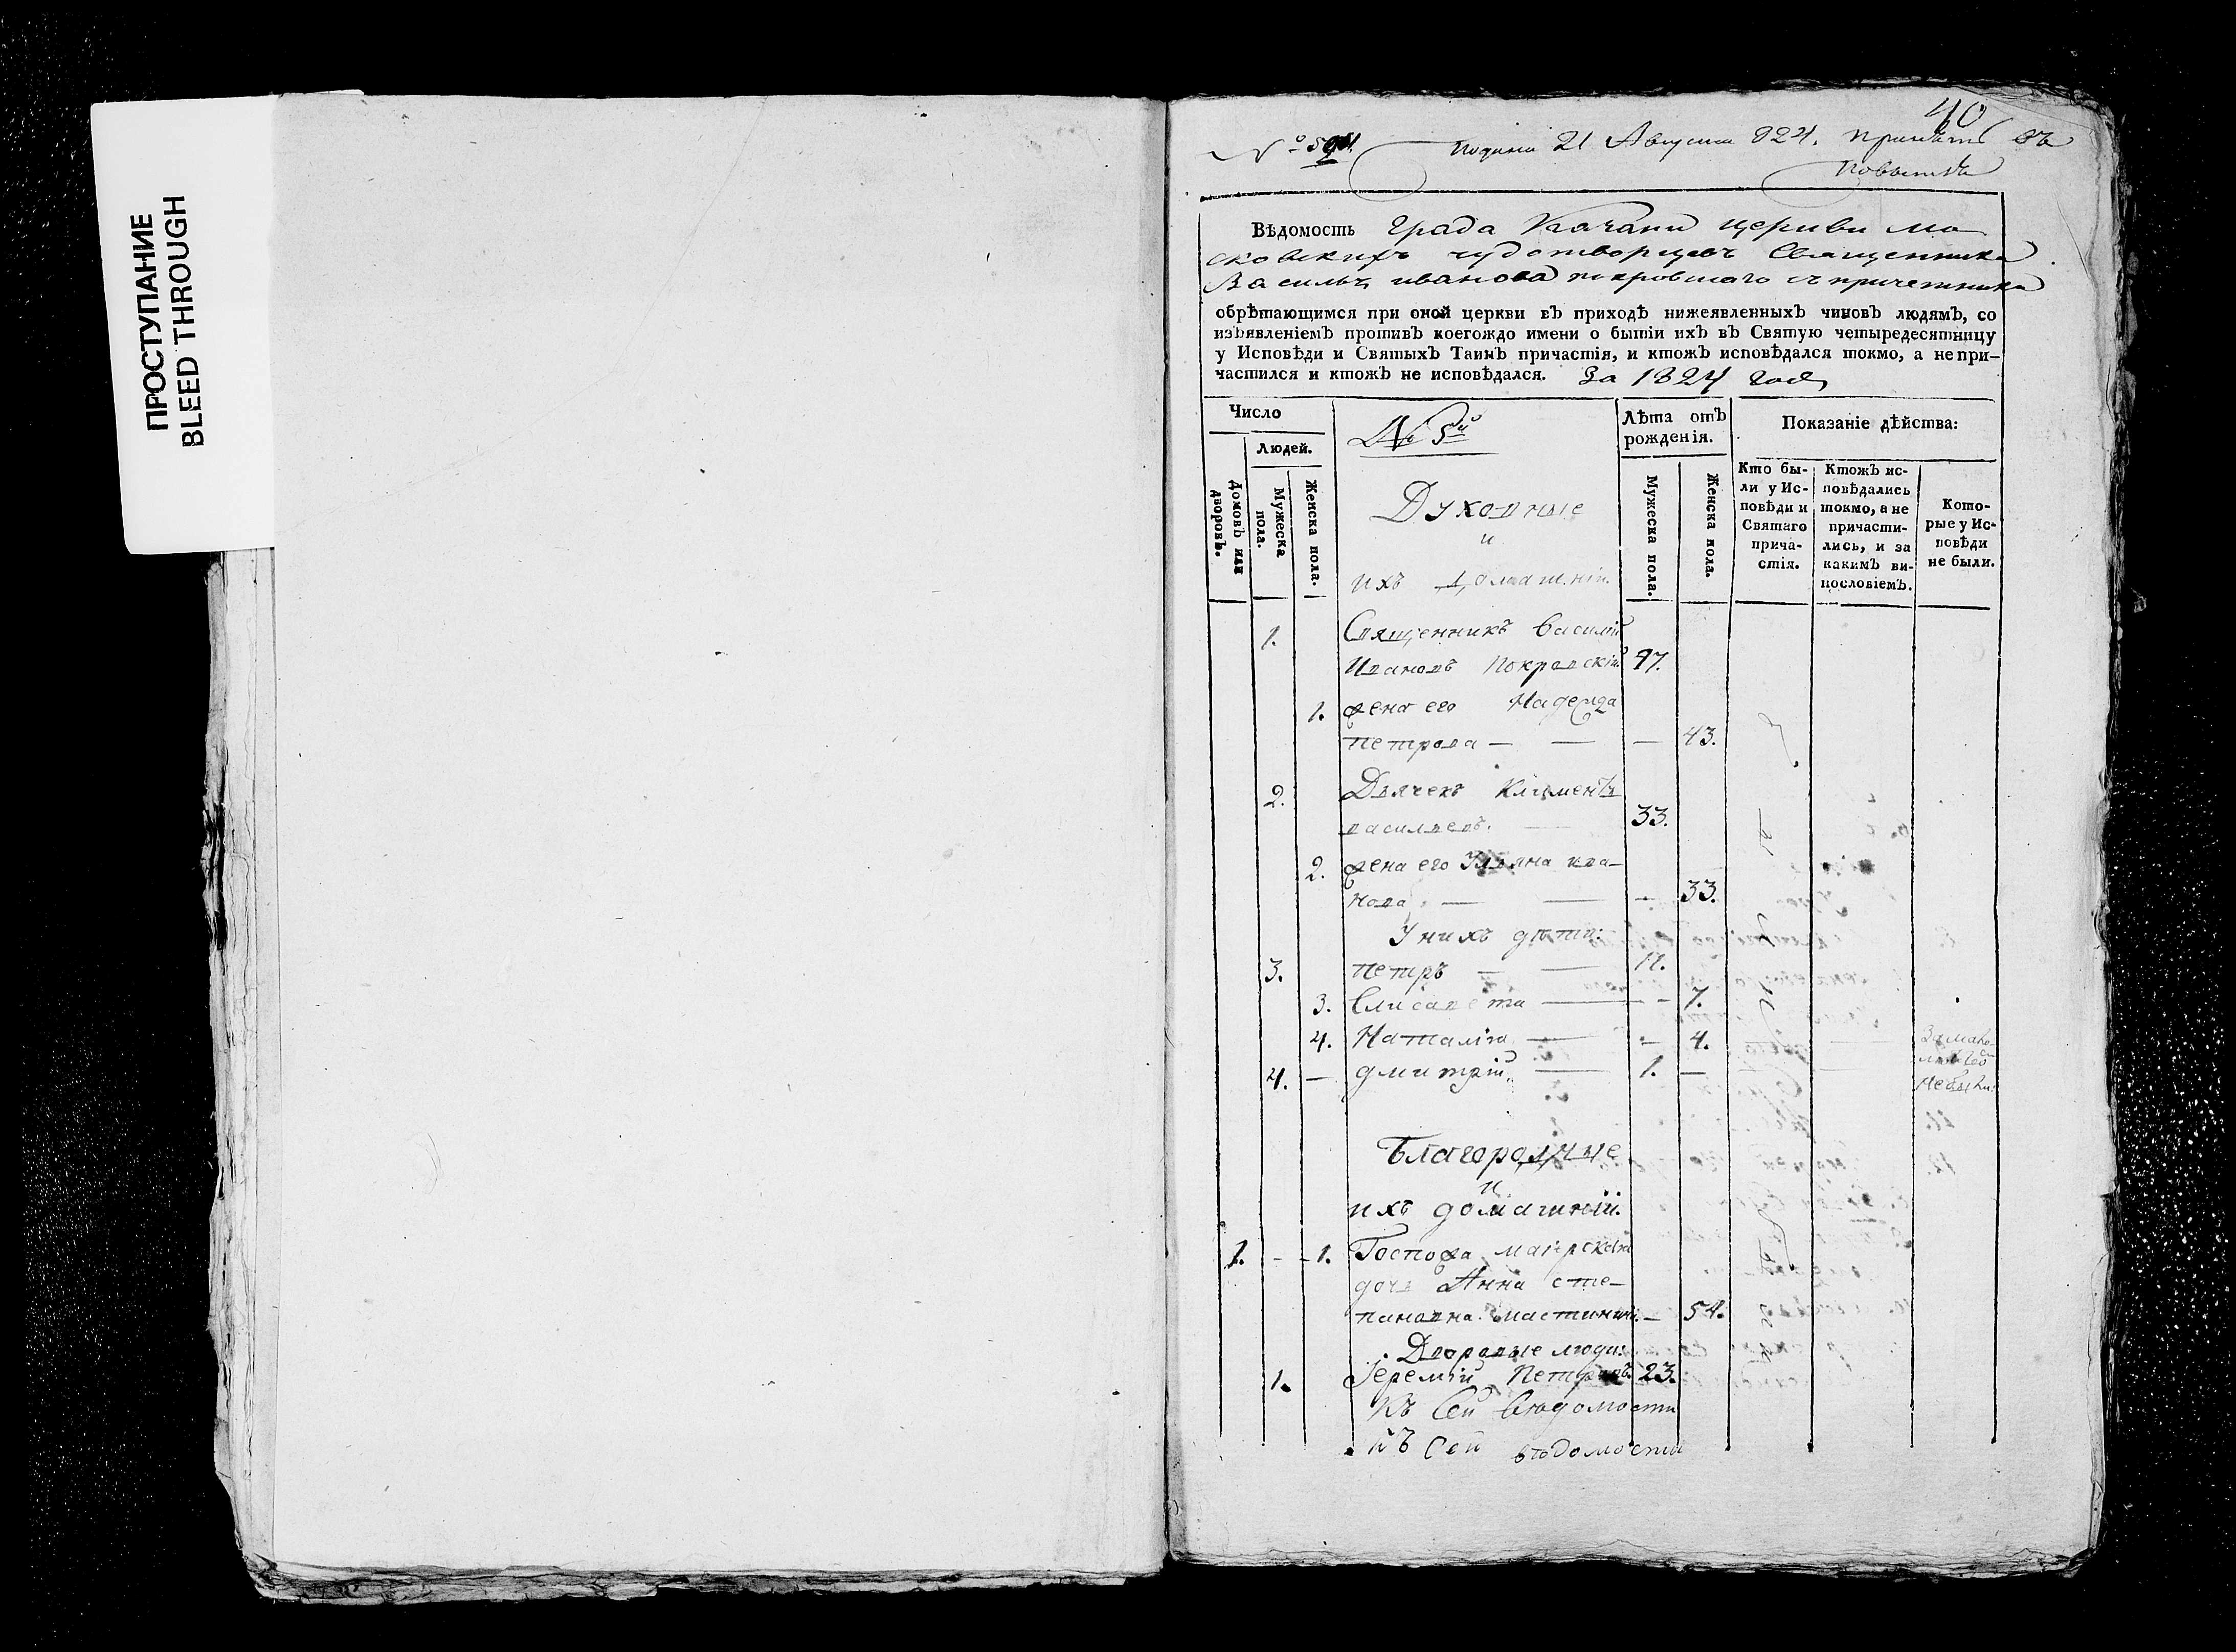 ПРОСТУПАНИЕ
BLEED THROUGH
40
№ 594. Подана 21 Августа 824. Принять въ
Повытье
Вѣдомость Града Казани церкви мо
сковскихъ чудотворцевъ Священника
Василья иванова покровскаго съ причетники
обрѣтающимся при оной церкви въ приходѣ нижеявленныхъ чиновъ людямъ, со
изъявленіемъ противъ коегождо имени о бытіи ихъ въ Святую четыредесятницу
у Исповѣди и Святыхъ Таинъ причастія, и ктожъ исповѣдался токмо, а не при-
частился и ктожъ не исповѣдался. За 1824 годъ
Число
Людей.
Домовъ или дворовъ.
Мужеска пола.
Женска пола.
№ 5й
Лѣта отъ рожденія.
Мужеска пола.
Женска пола.
Показаніе дѣйства:
Кто бы-
ли у Ис-
повѣди и
Святаго
прича-
стія.
Ктожъ ис-
повѣдались
токмо, а не
причасти-
лись, и за
какимъ ви-
нословіемъ.
Кото-
рые у Ис-
повѣди
не были.
Духовные
и
ихъ домашніи.
1. Священникъ Василій
Ивановъ Покровскій 47.
1. жена его Надежда
петрова — — — 43.
2. Дьячекъ Климентъ
васильевъ. — 33.
2. жена его Ульяна ива-
нова — — — 33.
У нихъ дѣти:
3. петръ — — 11.
3. Елисавета — — 7.
4. Наталія — — 4.
4. — дмитрій. — 1. —
За мало-
лѣтс
небыли
Благородные
и
ихъ домашніи.
1. - - 1. Госпожа маіорская
дочь Анна сте-
пановна — 54.
Дворовые люди:
1. Іеремій Петровъ. 23.
Къ Сей вѣдомости
къ Сей вѣдомости